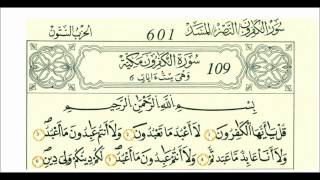 سُوَرُ الْكٰفِرُونَ النَّصْرِ الْمَسَدِ 601 الحِزْبُ السِّتُّونَ
سُورَةُ الْكٰفِرُونَ مَكِّيَّةٌ 109
وَهِيَ سِتُّ ءَايَاتٍ 6
بِسْمِ اللَّهِ الرَّحْمٰنِ الرَّحِيمِ
قُلْ يٰأَيُّهَا الْكٰفِرُونَ ① لَا أَعْبُدُ مَا تَعْبُدُونَ ② وَلَا أَنتُمْ عٰبِدُونَ مَا أَعْبُدُ ③
وَلَا أَنَا عَابِدٌ مَّا عَبَدتُّمْ ④ وَلَا أَنتُمْ عٰبِدُونَ مَا أَعْبُدُ ⑤ لَكُمْ دِينُكُمْ وَلِيَ دِينِ ⑥